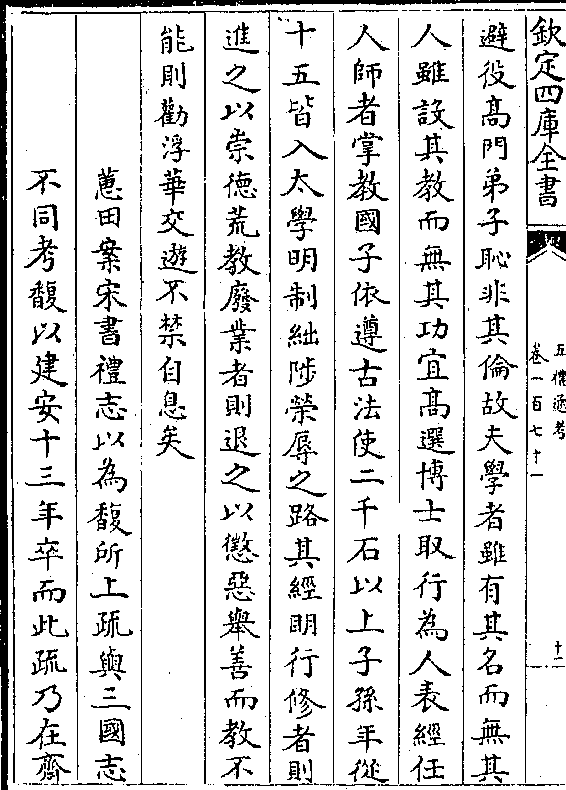 欽定四庫全書
五禮通考
卷一百七十一
十二
避役髙門弟子恥非其倫故夫學者雖有其名而無其
人雖設其教而無其功宜髙選博士取行為人表經任
人師者掌教國子依遵古法使二千石以上子孫年從
十五皆入太學明制絀陟榮辱之路其經明行修者則
進之以崇德荒教廢業者則退之以懲惡舉善而教不
能則勸浮華交遊不禁自息矣
蕙田案宋書禮志以為馥所上疏與三國志
不同考馥以建安十三年卒而此疏乃在齊